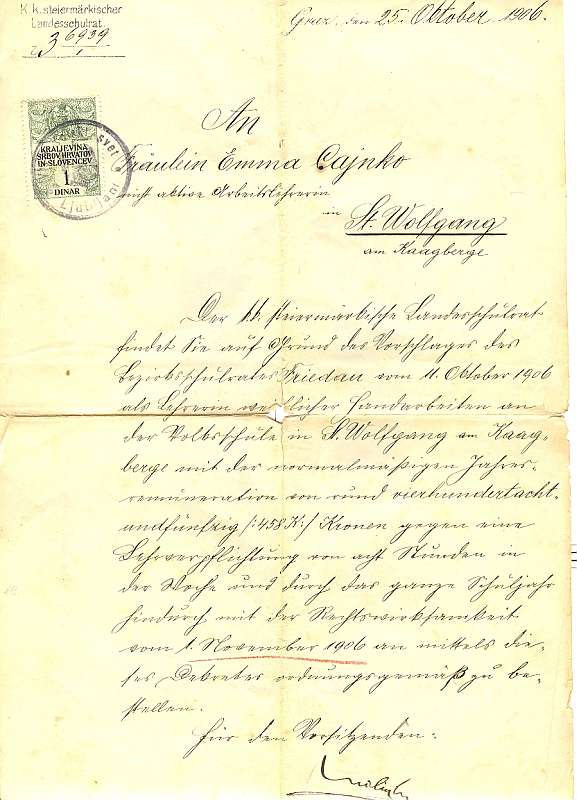 K. k. steiermärkischer
Landesschulrat.
Z. 3 6939/1
Graz, den 25. Oktober 1906.
An
Fräulein Emma Cajnko
nicht aktive Arbeitslehrerin
in
St. Wolfgang
am Kaagberge
KRALJEVINA
SRBOV, HRVATOV
IN SLOVENCEV
1
DINAR
svet
Ljubljani
Der k.k. steiermärkische Landesschulrat
findet Sie auf Grund des Vorschlages des
Bezirksschulrates Friedau vom 11. Oktober 1906
als Lehrerin weiblicher Handarbeiten an
der Volksschule in St. Wolfgang am Kaag-
berge mit der normalmäßigen Jahres-
remuneration von rund vierhundertacht-
undfünfzig /:458 K:/ Kronen gegen eine
Lehrverpflichtung von acht Stunden in
der Woche und durch das ganze Schuljahr
hindurch mit der Rechtswirksamkeit
vom 1. November 1906 an mittels die-
ses Dekretes ordnungsgemäß zu be-
stellen.
Für den Vorsitzenden: